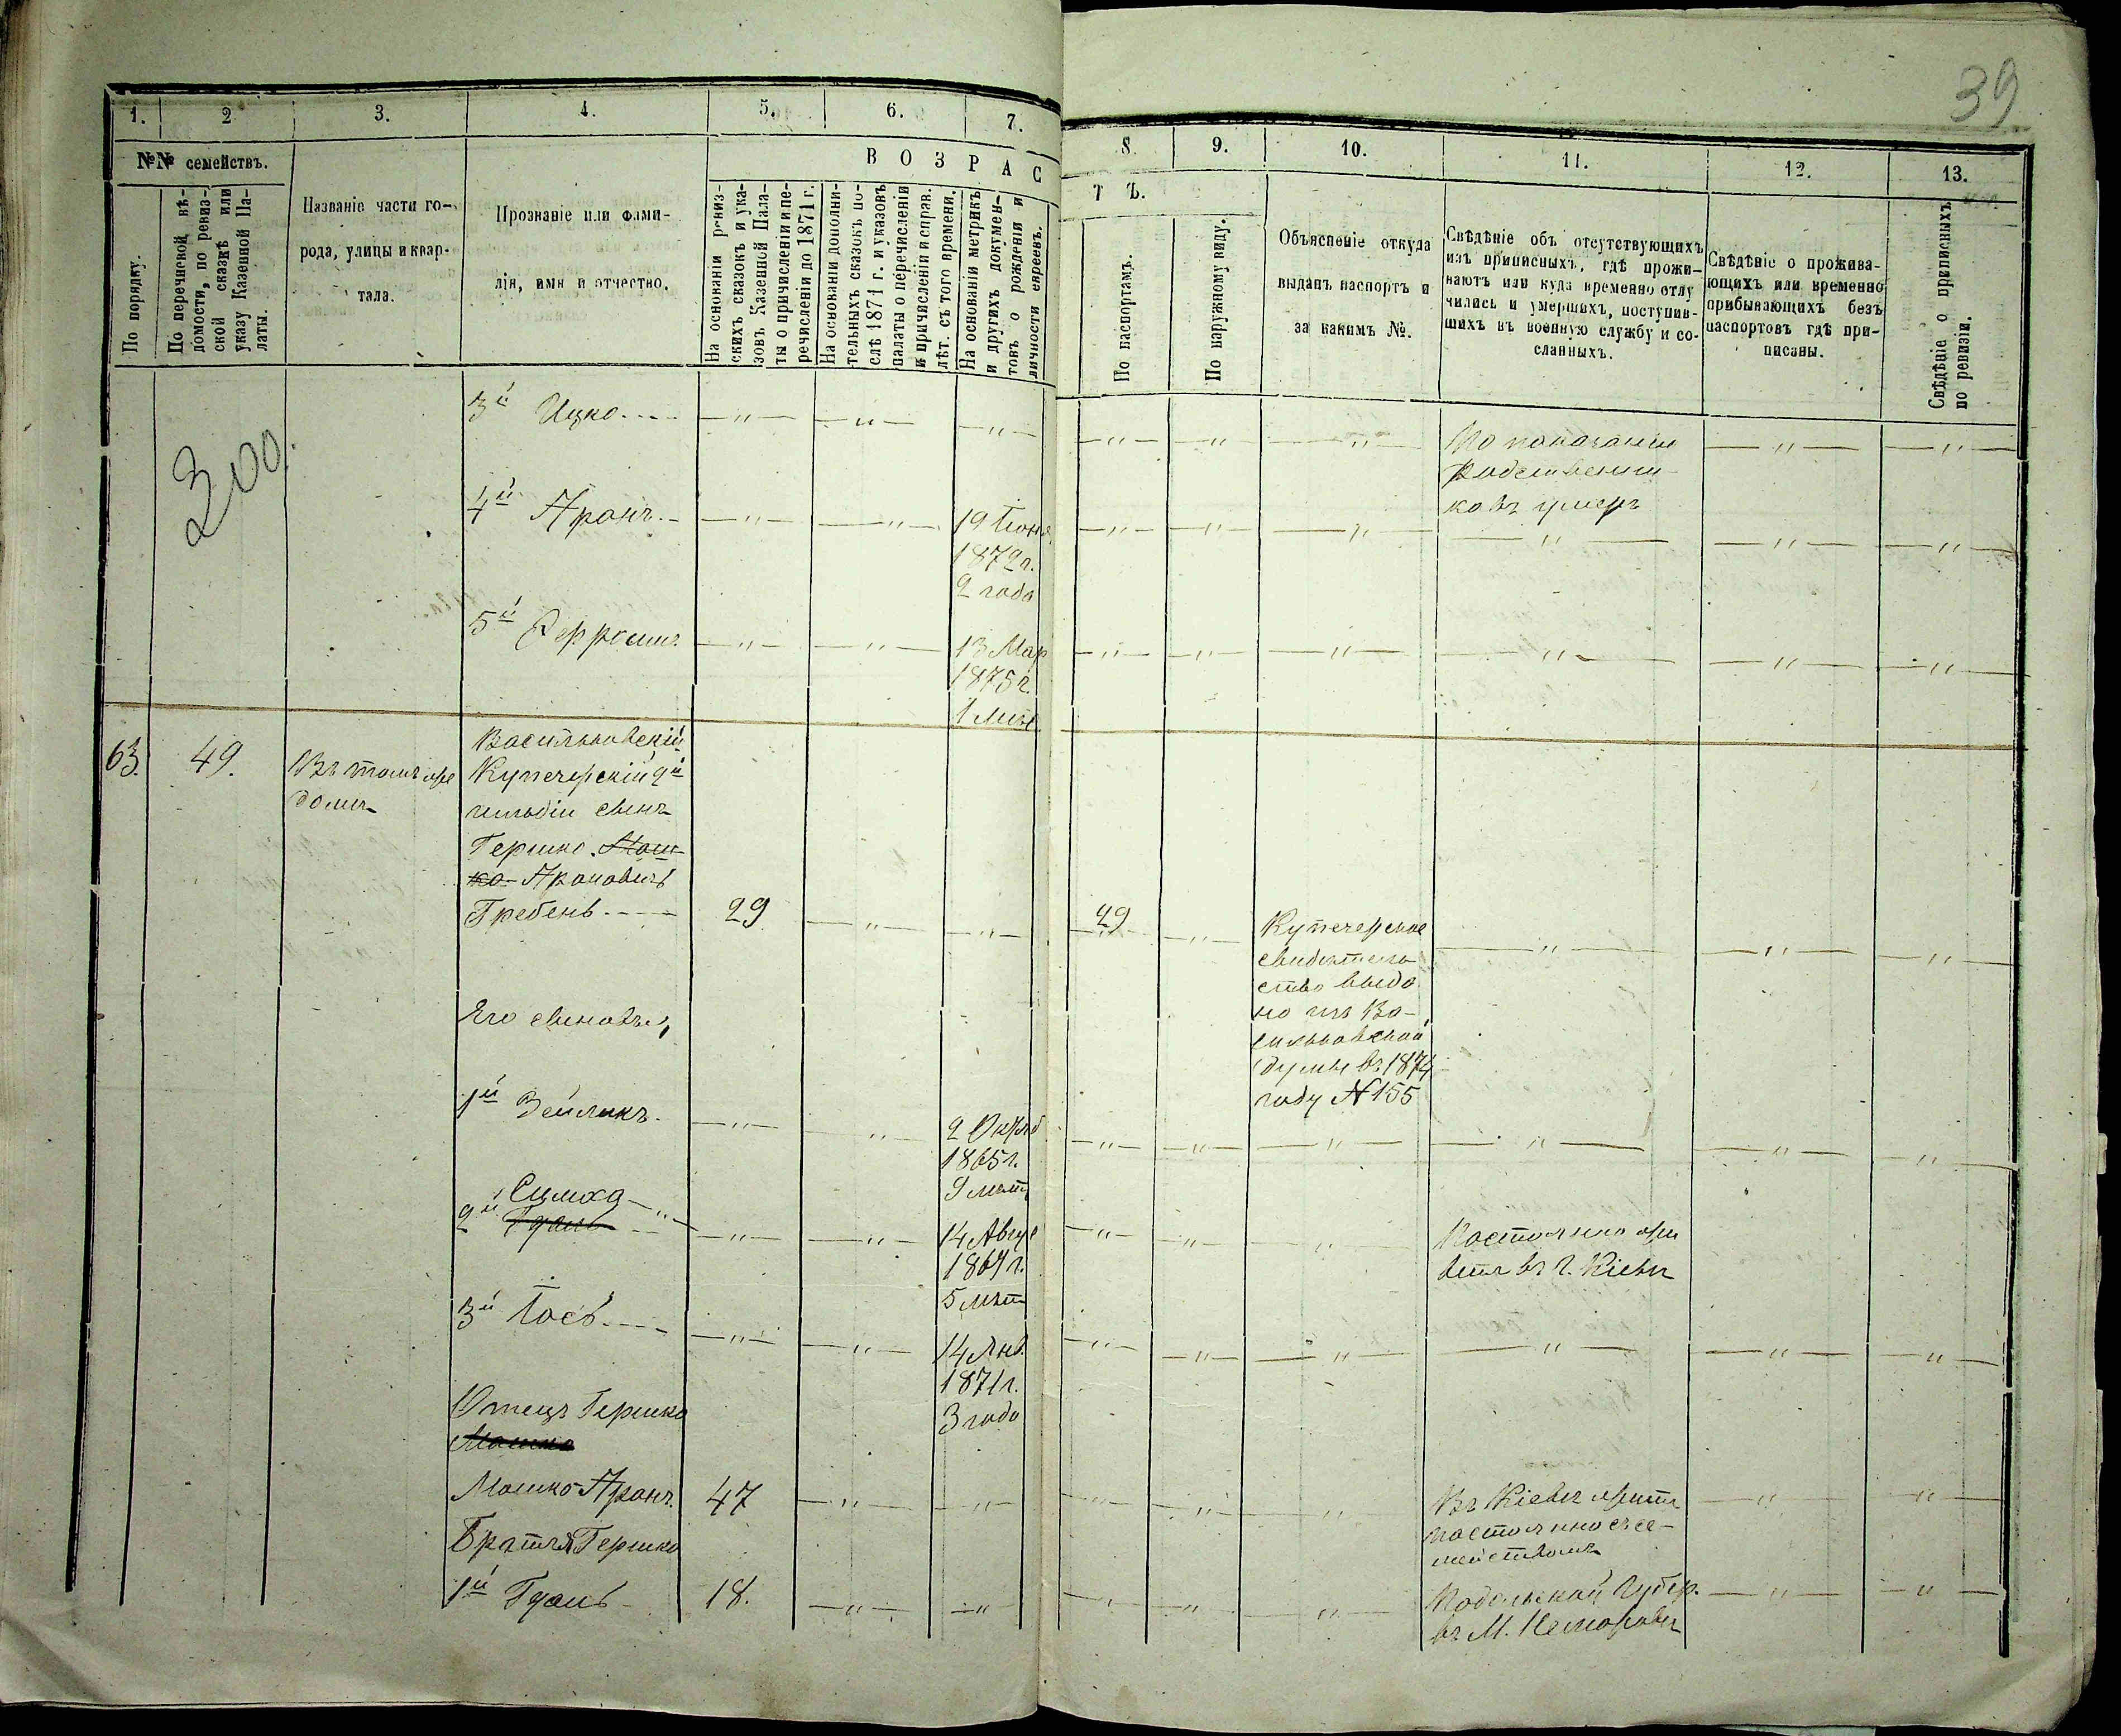 39
1. 2 3. 4. 5. 6. 7.
8. 9. 10. 11. 12. 13.
№№ семействъ.
По порядку.
По перечневой вѣ-
домости, по ревиз-
ской сказкѣ или
указу Казенной Па-
латы.
Названіе части го-
рода, улицы и квар-
тала.
Прозваніе или фами-
лія, имя и отчество.
ВОЗРАС
ТЪ.
На основаніи ревиз-
скихъ сказокъ и ука-
зовъ Казенной Пала-
ты о причисленіи и пе-
речисленіи до 1871 г.
На основаніи дополни-
тельныхъ сказокъ по-
слѣ 1871 г. и указовъ
палаты о перечисленіи
и причисленіи и справ.
лѣт. съ того времени.
На основаніи метрикъ
и другихъ докумен-
товъ о рожденіи и
личности евреевъ.
По паспортамъ.
По наружному виду.
Объясненіе откуда
выданъ паспортъ и
за какимъ №.
Свѣдѣніе объ отсутствующихъ
изъ приписныхъ, гдѣ прожи-
ваютъ или куда временно отлу
чились и умершихъ, поступив-
шихъ въ военную службу и со-
сланныхъ.
Свѣдѣніе о прожива-
ющихъ или временно
прибывающихъ безъ
паспортовъ гдѣ при-
писаны.
Свѣдѣніе о приписныхъ
по ревизіи.
200.
3й Ицко.---- —"— —"— —"— —"— —"— —"— По показанію —"— —"—
Родственни-
ковъ умеръ
4й Аронъ.- —"— —"— 19 Іюня —"— —"— —"— —"— —"— —"—
1872 г.
2 года
5й —"— —"— 13 Мар —"— —"— —"— —"— —"— —"—
1875 г.
1 мѣс
63. 49. Въ томъ же
домѣ
Васильковскій
Купечерскій 2й
гильдіи сынъ
Гершко Мош-
ко Ароновичъ
Гребень---- 29 —"— —"— 29 —"— Купечерское —"— —"— —"—
свидѣтель
ство выда
но изъ Ва-
сильковской
думы въ 1874
году №155
Его сыновья,
1й Зейликъ. —"— —"— 2 Октяб —"— —"— —"— —"— —"— —"—
1865 г.
9 лѣтъ
Симха —"—
2й Гдаль —"— —"— 14 Авгус —"— —"— —"— Постоянно жи
1869 г. ветъ въ г. Кіевѣ
5 лѣтъ
3й Іось.---- —"— —"— 14 Янв. —"— —"— —"— —"— —"— —"—
1871 г.
3 года
Отецъ Гершко
Мошко
Мошко Аронъ. 47 —"— —"— —"— —"— —"— Въ Кіевѣ житъ —"— —"—
постоянно съ се-
мействомъ
Братья Гершко
1й Гдаль- 18. —"— —"— —"— —"— —"— Подольской Губер. —"— —"—
въ М. Немировѣ